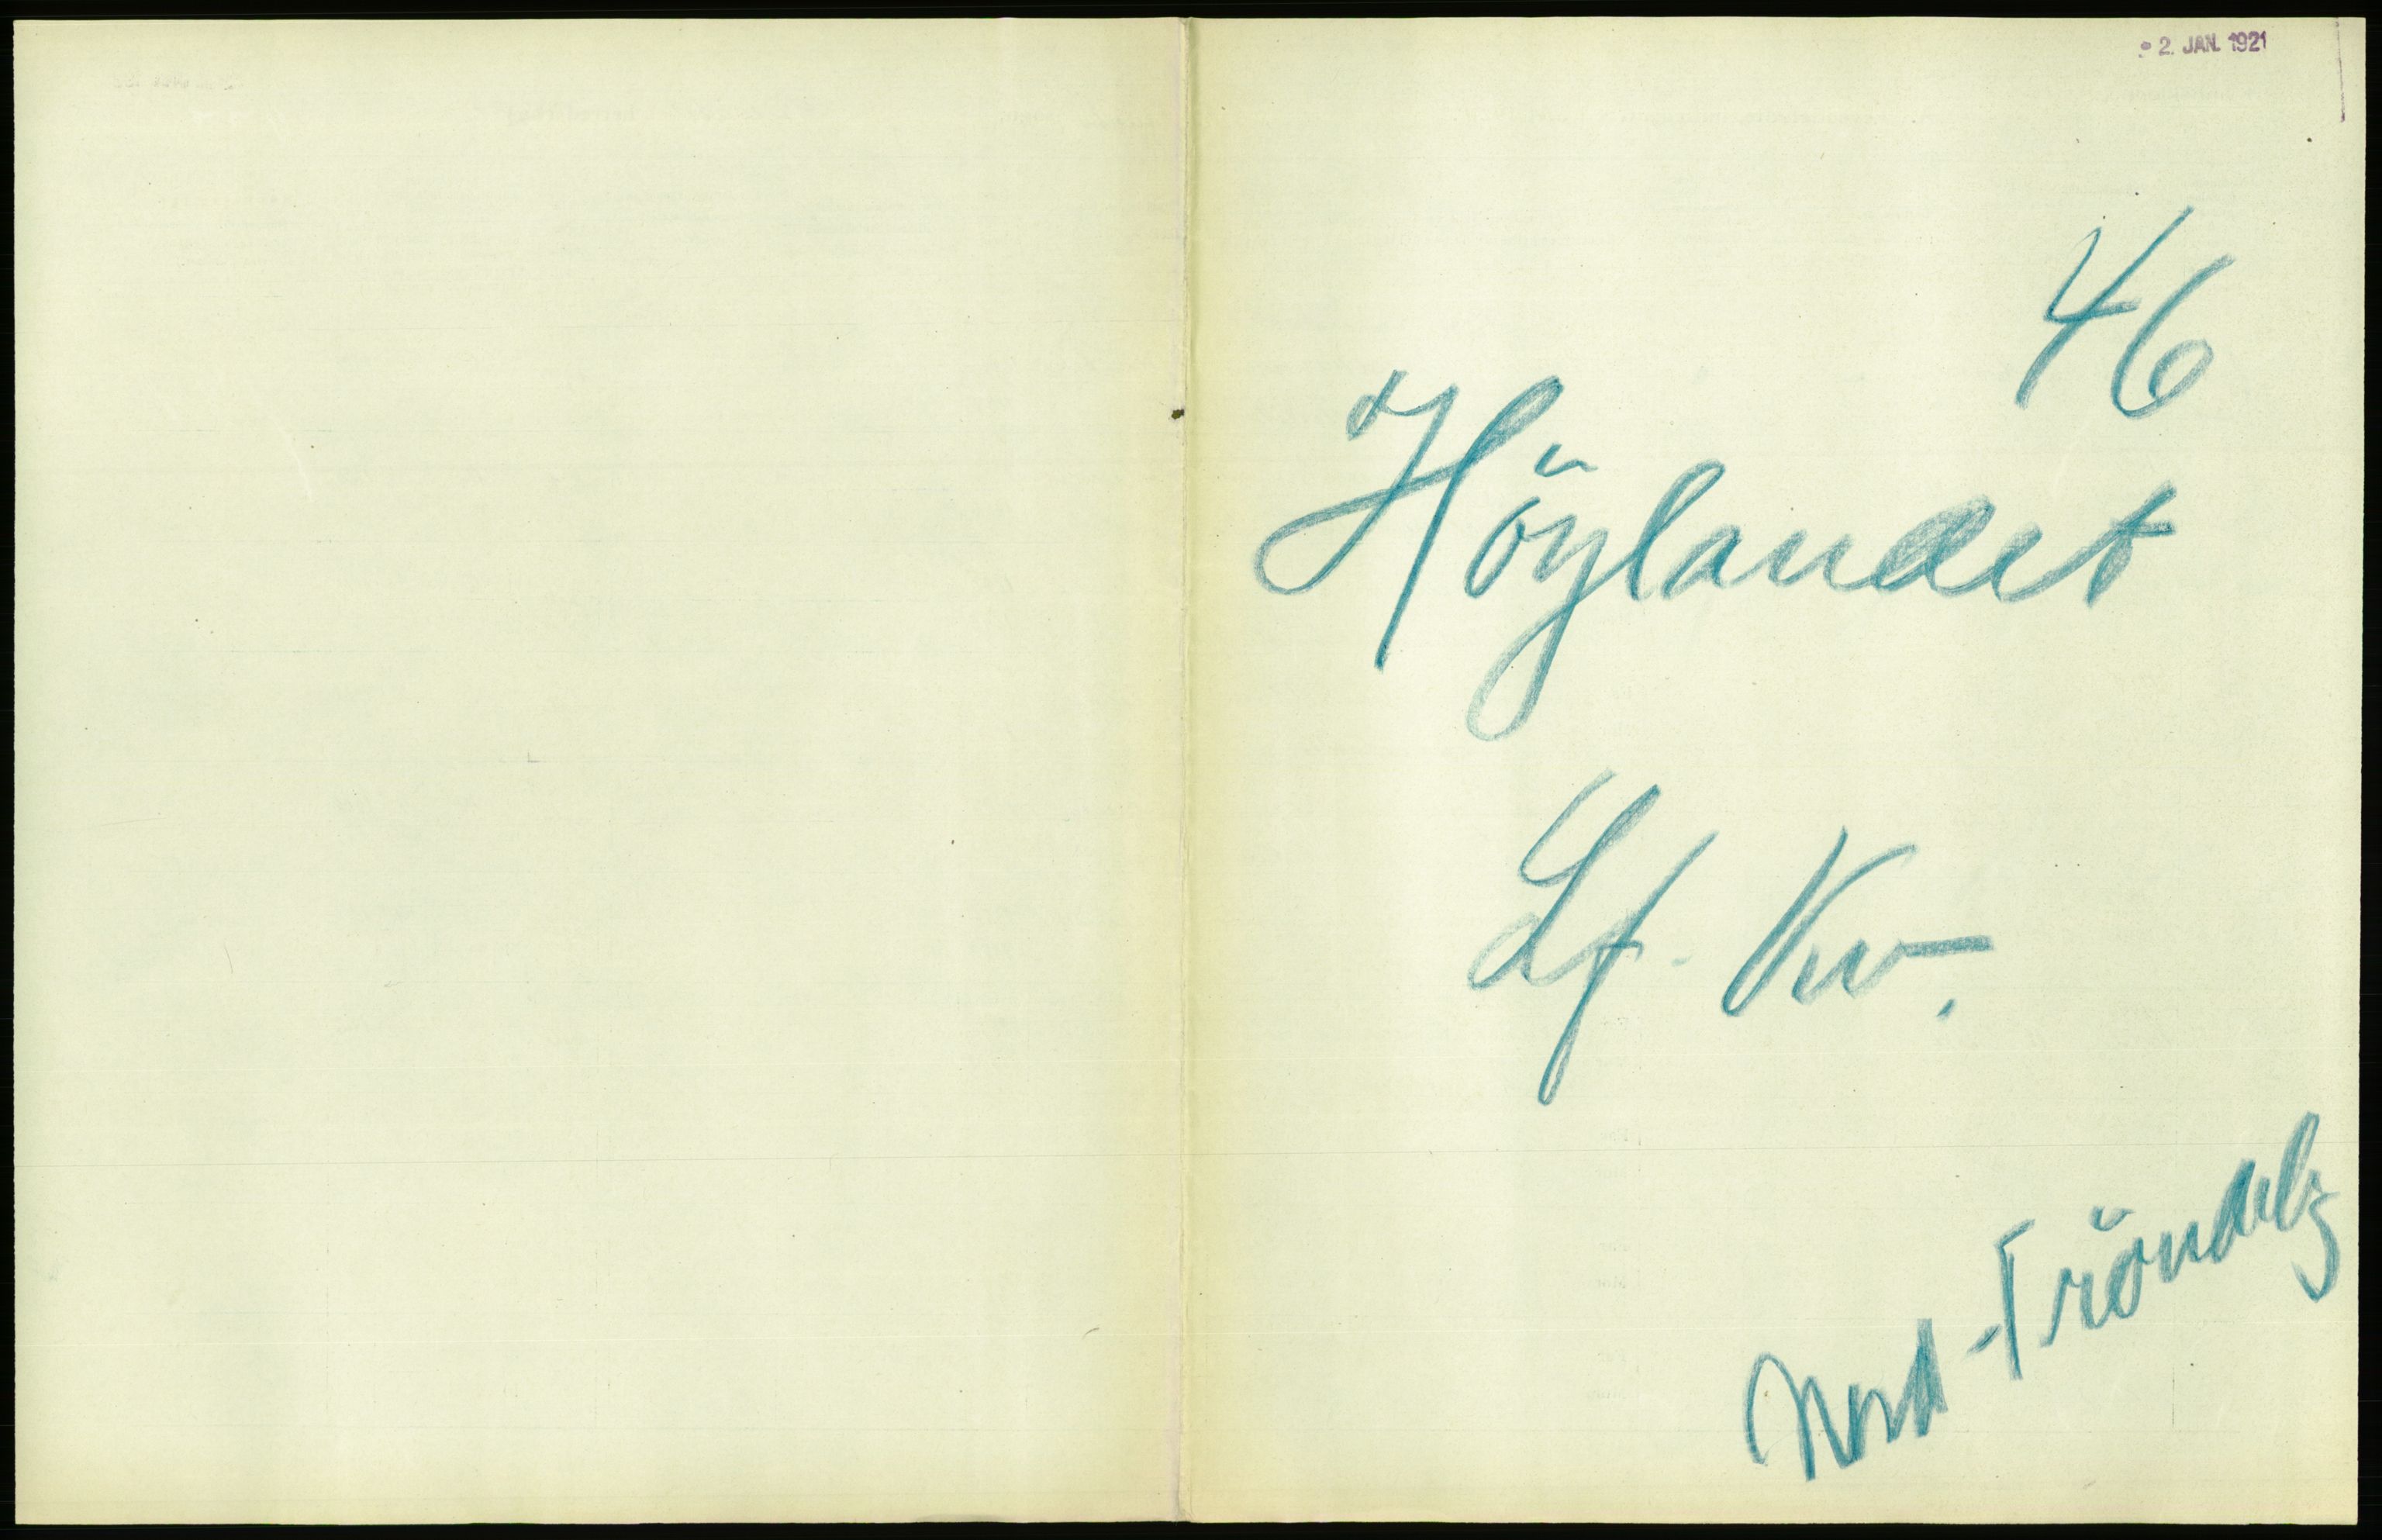 2. JAN. 1921
46
Höylandet
Lf. Kv.
Nord-Tröndelg